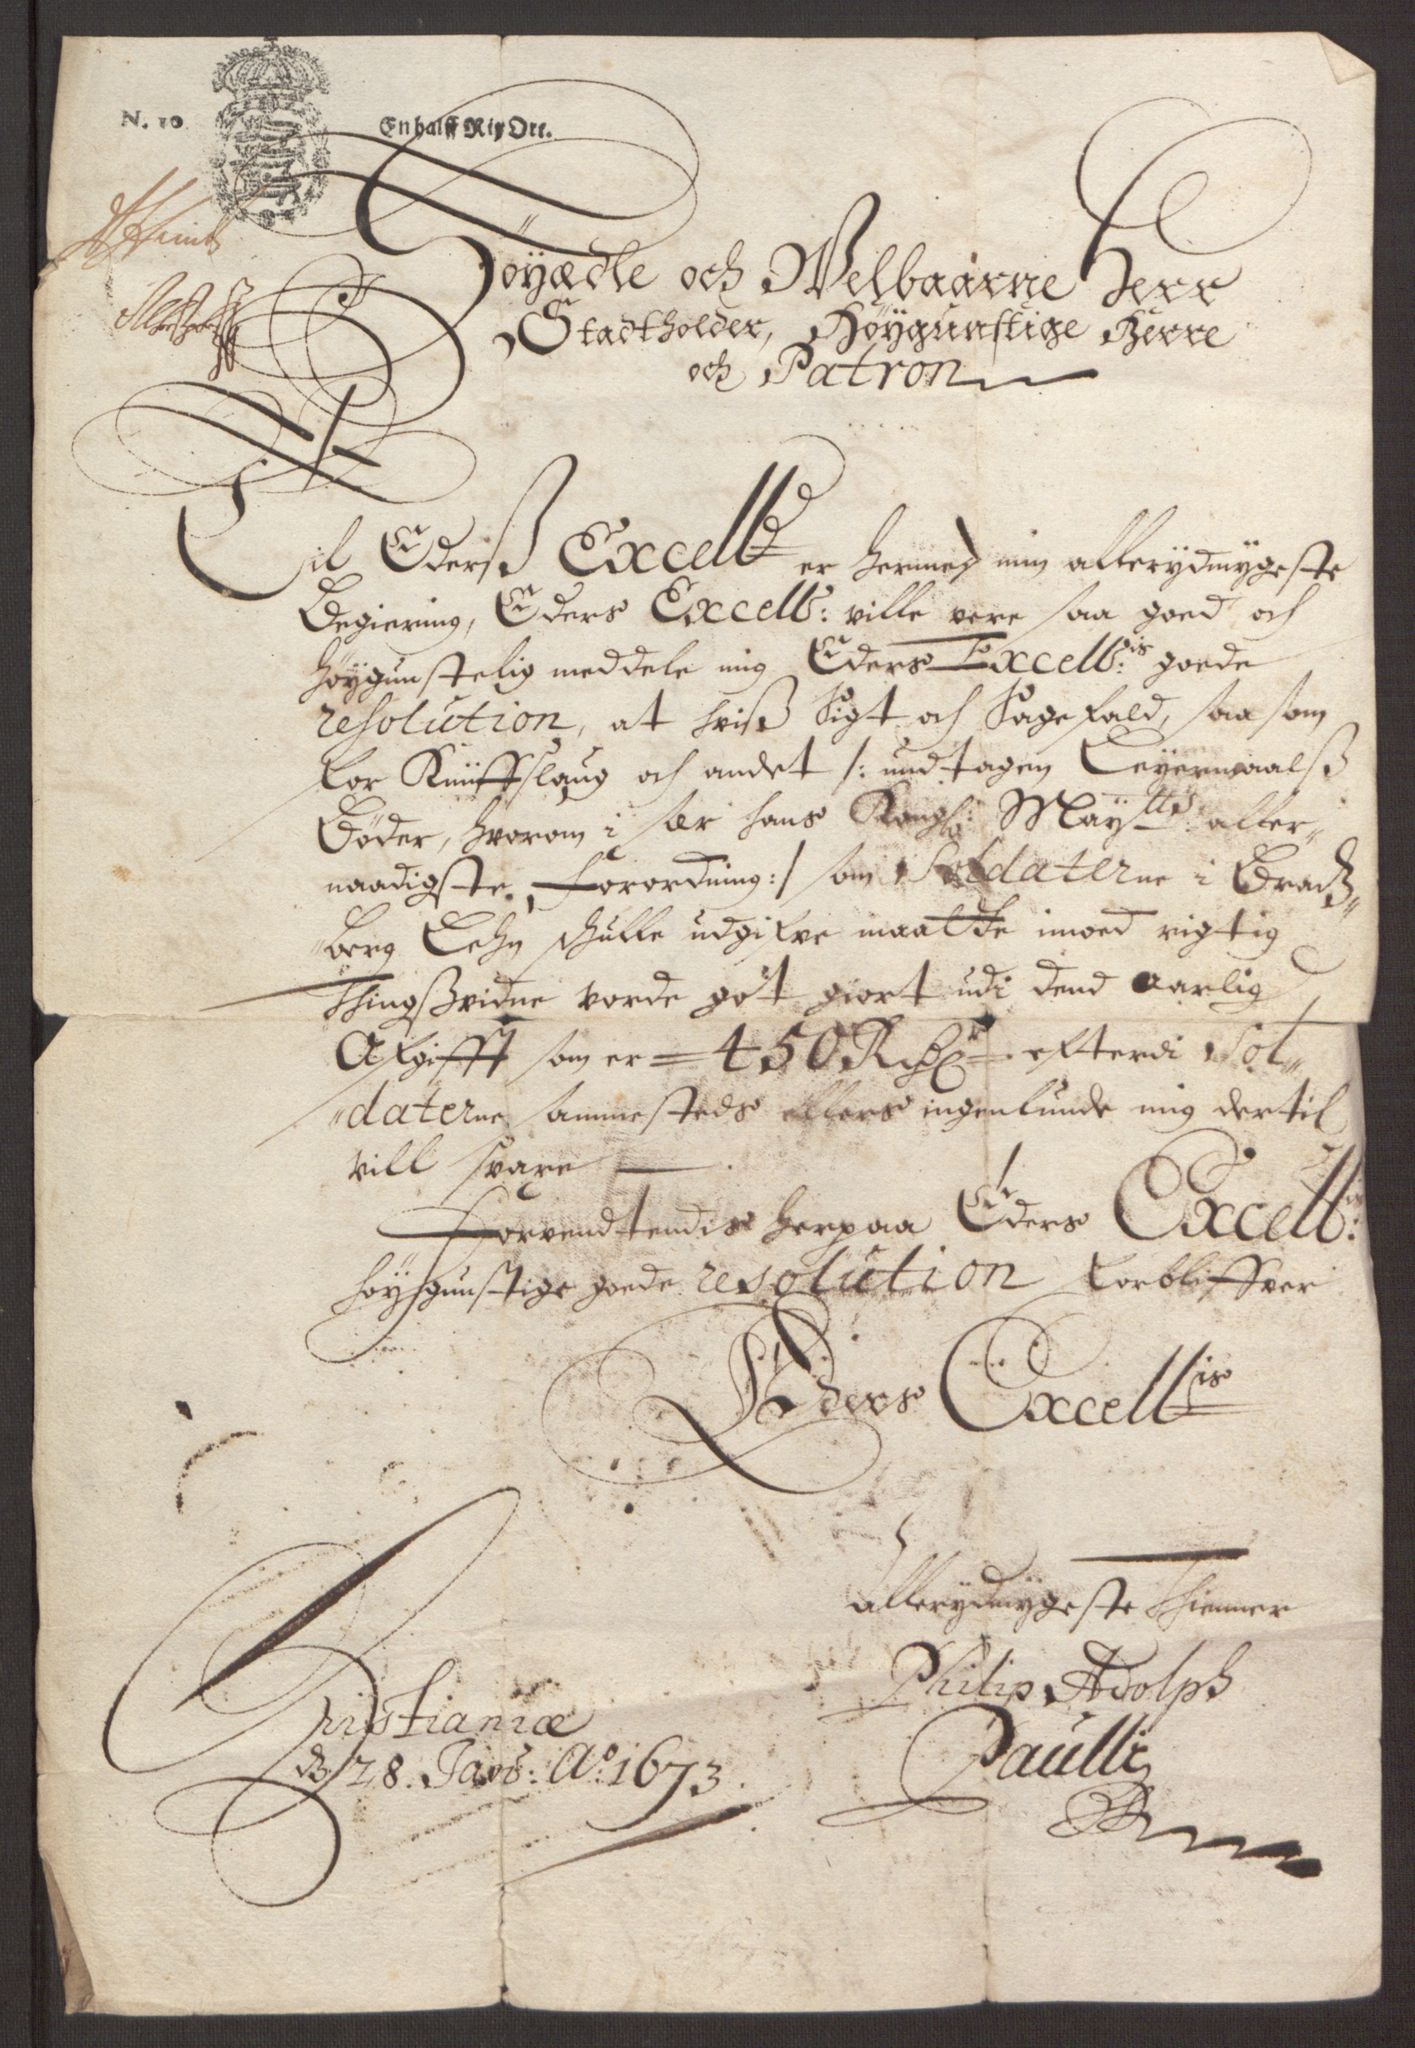 N. 10
En halff Rix Ort.
Höyædle och Welbaarne Herr
Stadtholder, Höygunstige Herre
och Patron
Til Eders Excell: er hermed min allerydmygeste
Begiering, Eders Excell: ville vere saa goed och
höygunstelig meddele mig Eders Excell:is goede
resolution, at hviß Sigt och Sagefald, saa som
for Knüffslaug och andet /: undtagen Leyermaalß
Böder, hvorom i sær hans Kongl: May:tts aller-
naadigste Forordning :/ som Soldaterne i Bratz-
berg Lehn schulle udgifve maatte imoed rigtig
Thingßvidne vorde got giort udi dend aarlig
Afgifft som er = 450 Rdr = efterdi Sol-
daterne sammesteds ellers ingenlunde mig dertil
vill svare
Forvendtendis herpaa Eders Excell:is
höygunstige goede resolution forbliffver
Eders Excell:is
Allerydmygeste Thienner
Philip Adolph
Paulli
Cristianiæ
d. 28. Jan: Ao: 1673.